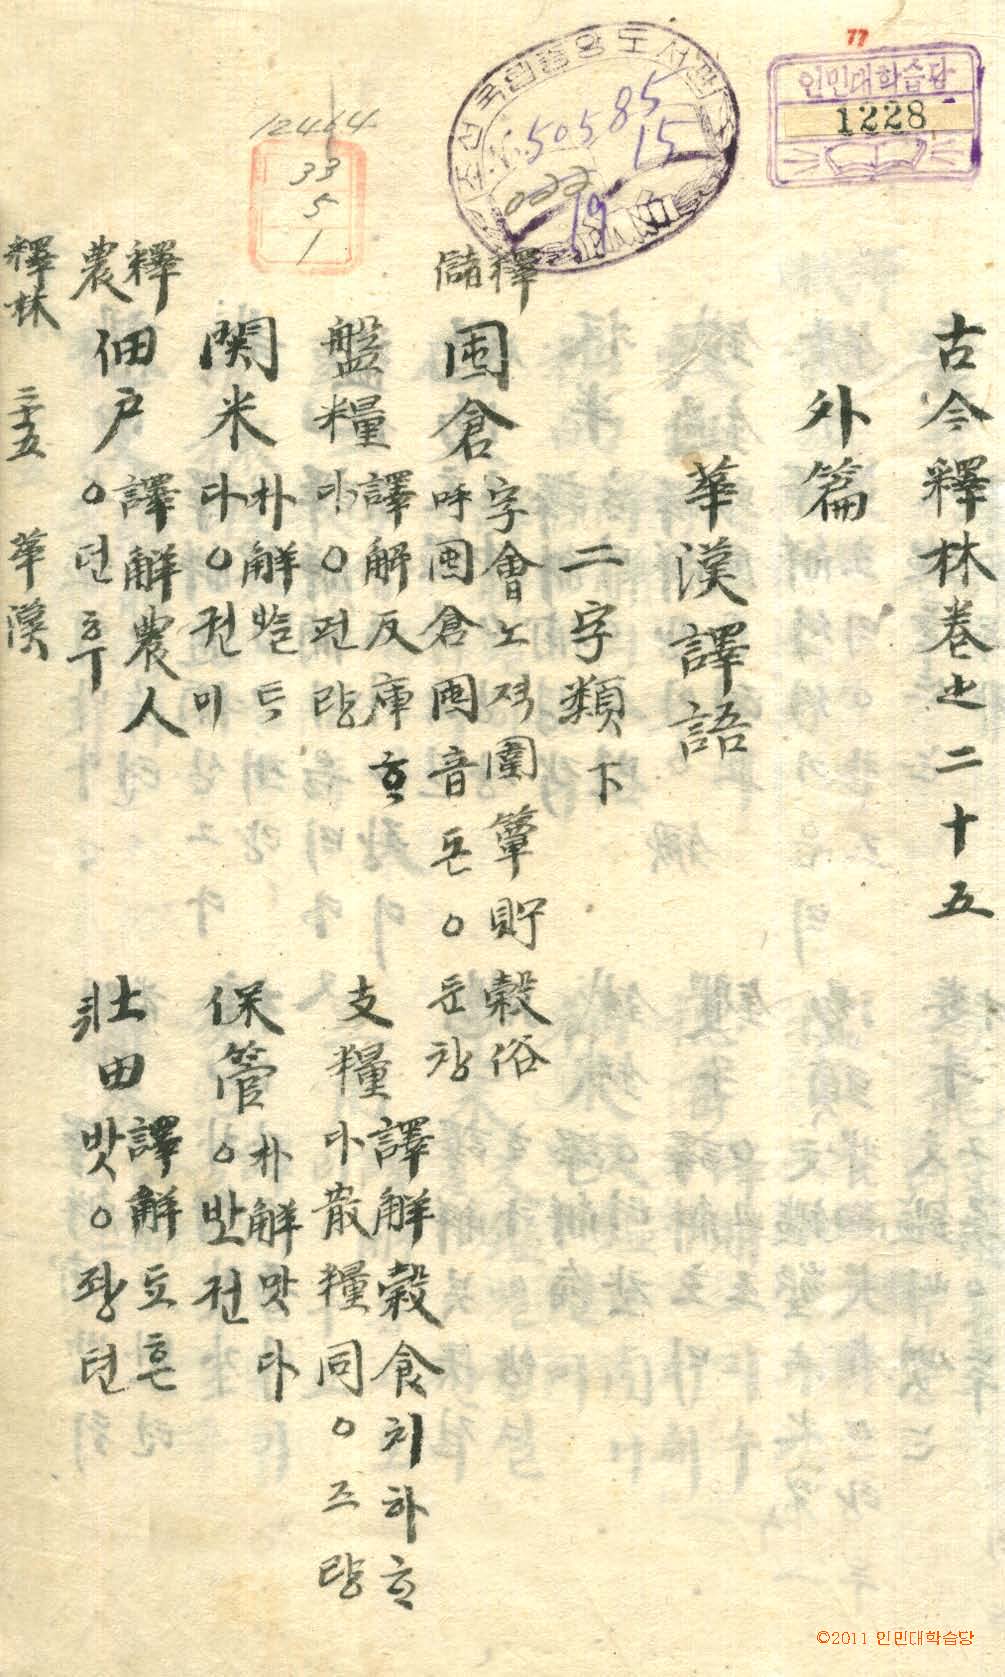 77
인민대학습당
1228
조선국립중앙도서관
50585
15
022
19
12464
33
5
1
古今釋林卷之二十五
外篇
華漢譯語
二字類下
釋儲
囤倉 字會노젹圍簞貯穀俗
呼囤倉囤音돈○둔창
盤糧 譯解反庫
○펀량
支糧 譯解穀食치하
散糧同○즈량
関米 朴解
다○권미
保管 朴解맛다
○반권
釋農
佃戶 譯解農人
○뎐후
壯田 譯解도흔
밧○쟝뎐
釋林 二十五 華漢
©2011 인민대학습당